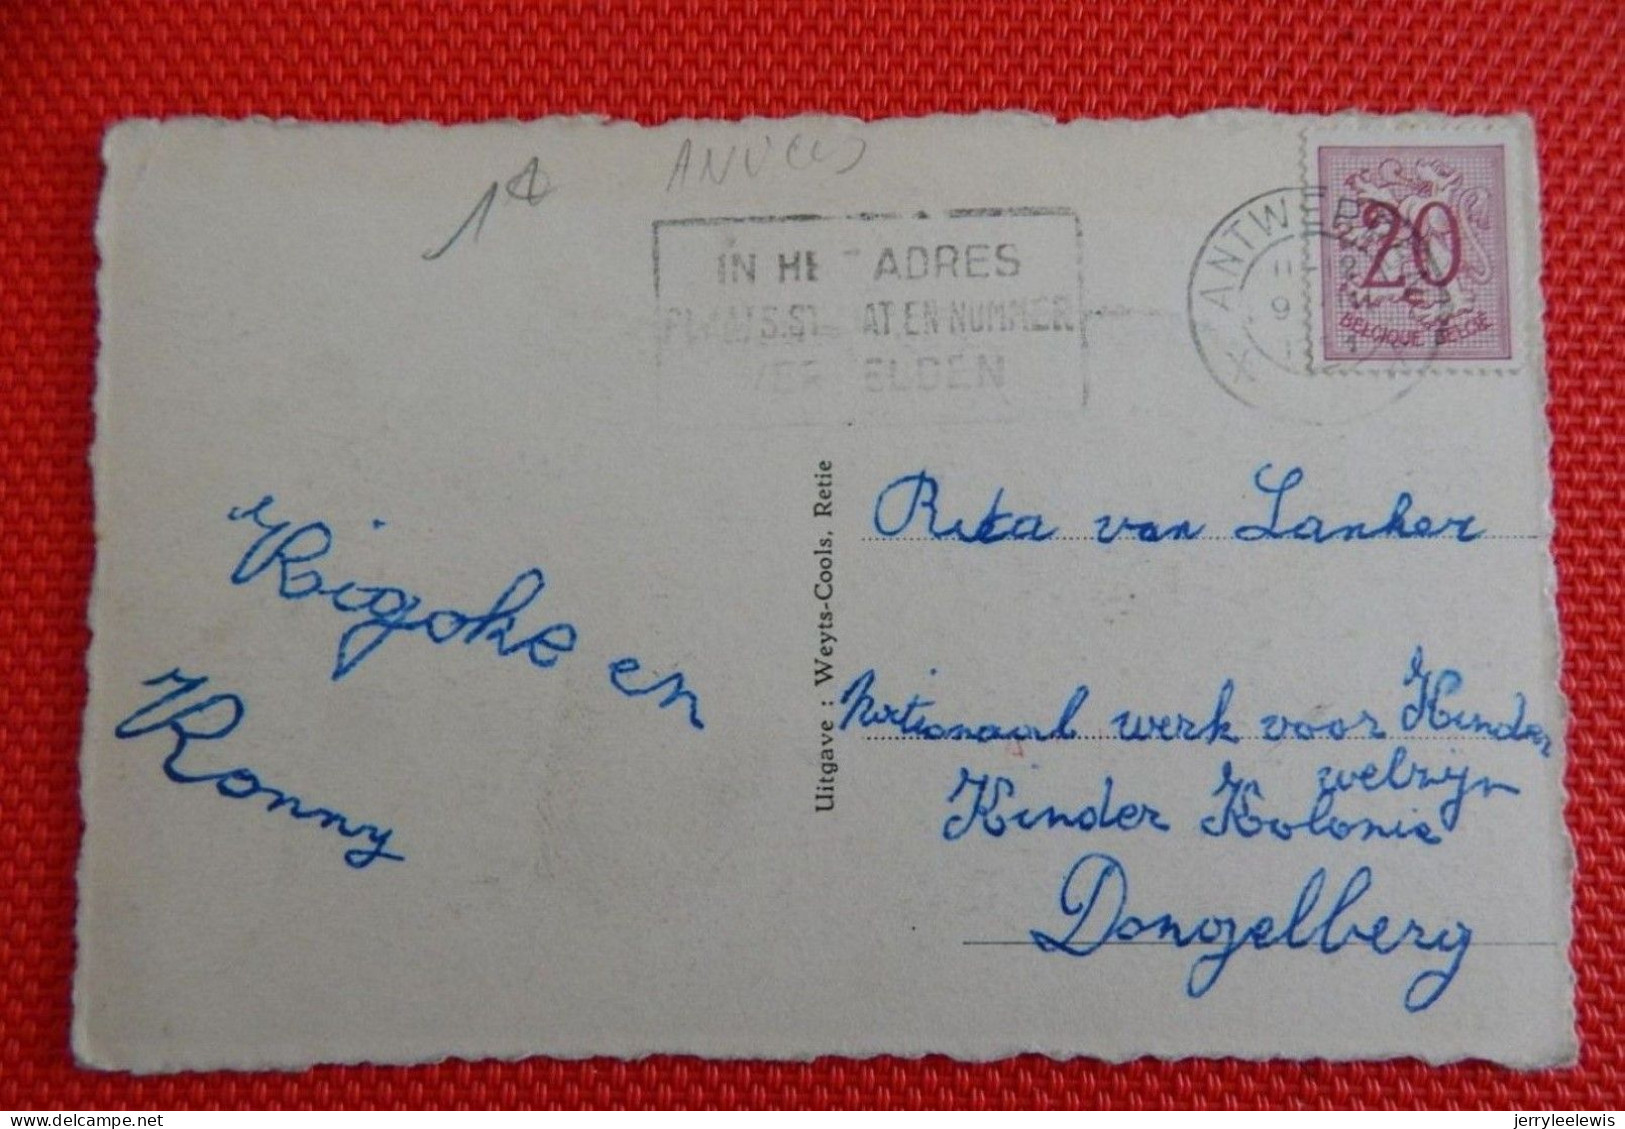 1e
ANTWERPEN
X X
IN HET ADRES
PLAATS.STRAAT.EN NUMMER
VERMELDEN
20
BELGIQUE BELGIE
Rigoke en
Ronny
Uitgave : Weyts-Cools, Retie
Rita van Lanker
Nationaal werk voor Kinder
welzijn
Kinder Kolonie
Dongelberg
delcampe.net
jerryleelewis